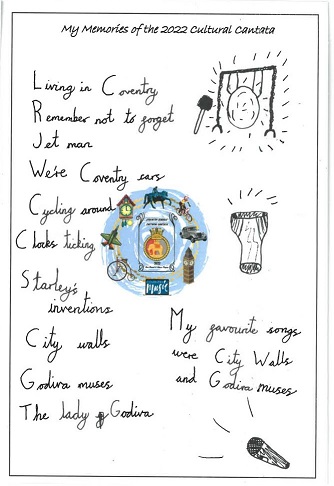 My Memories of the 2022 Cultural Cantata
Living in Coventry
Remember not to forget
Jet man
We're Coventry cars
Cycling around
Clocks ticking
Starley's
inventions
City walls
Godiva muses
The lady of Godiva
music
My favourite songs
were City Walls
and Godiva muses